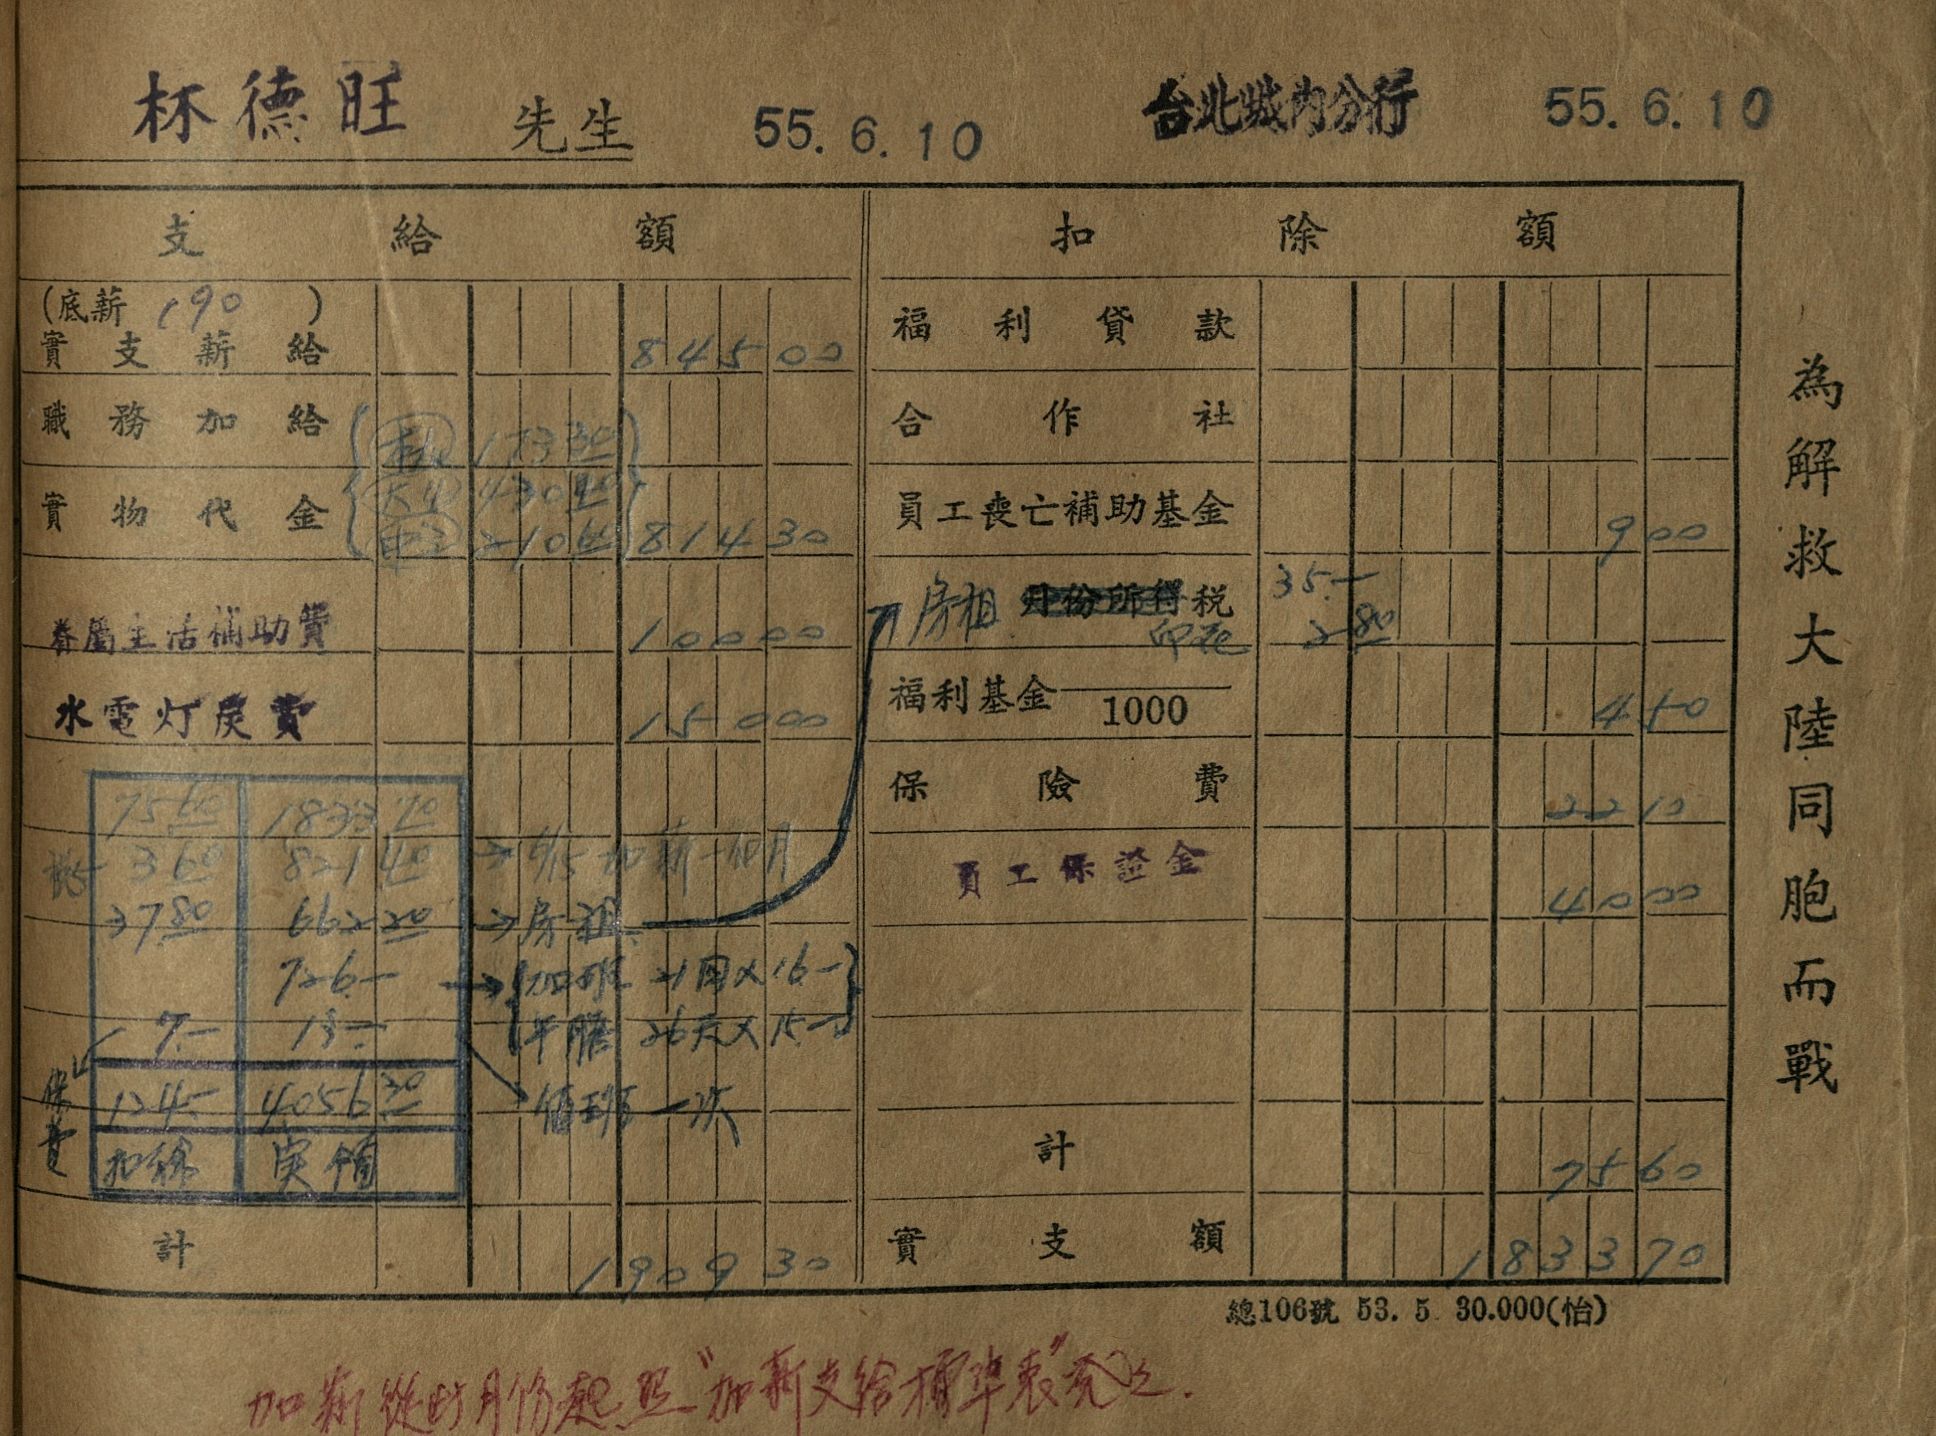 林德旺 先生 55.6.10 台北城內分行 55.6.10
支給額 扣除額
(底薪 190 )
實支薪給 845 00 福利貸款
職務加給 合作社
實物代金 814 30 員工喪亡補助基金 9 00
430
210
眷屬生活補助費 100 00 房租 月份所得稅 35.–
印花 2 80
水電灯炭費 150 00 福利基金 1000 4 50
75 60 1833 70 保險費 22 10
3 60 821 40 → 6/15 加薪一個月 員工保證金 40 00
37 80 662 20 → 房租
726.– → 加班 21回×16.–
午膳 26天×15.–
7.– 13.–
值班一次
保費 124.– 4056 30
扣除 実領 計 75 60
計 1909 30 實支額 1833 70
總106號 53. 5 30.000(怡)
加薪從此月份起照"加薪支給標準表"
為解救大陸同胞而戰